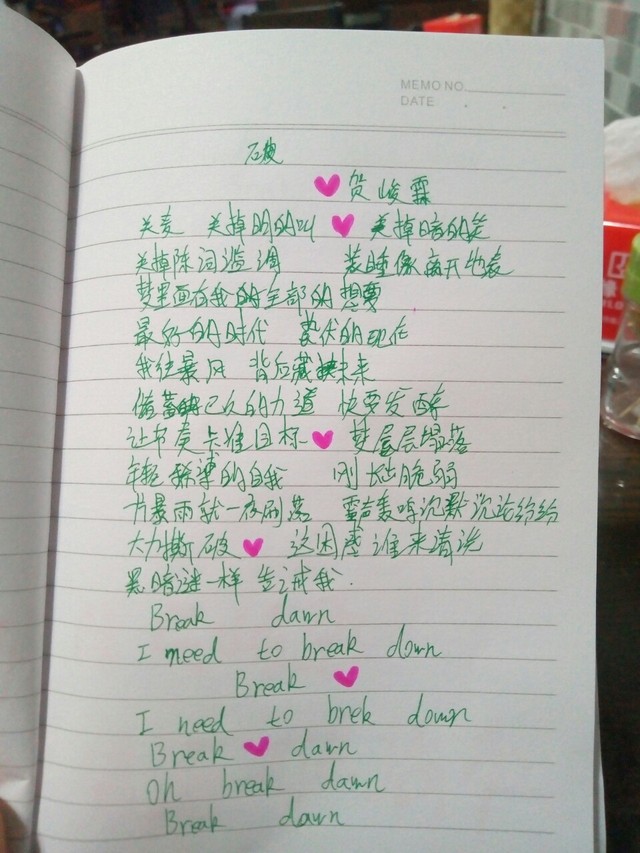 MEMO NO.
DATE
破
贺峻霖
关麦 关掉明的叫 关掉暗的笑
关掉陈词滥调 装睡像离开地表
梦里面有我的全部的想要
最好的时代 蛰伏的现在
我往暴风 背后藏 未来
储蓄 已久的力道 快要发酵
让节奏卡准目标 梦层层绿落
年轻 薄的自我 刚 脆弱
暴雨就一夜刷落 雷声轰鸣沉默 纷纷
大力撕破 这困惑谁来清洗
黑暗谜一样 告诫我.
Break dawn
I need to break down
Break
I need to brek down
Break dawn
Oh break dawn
Break dawn